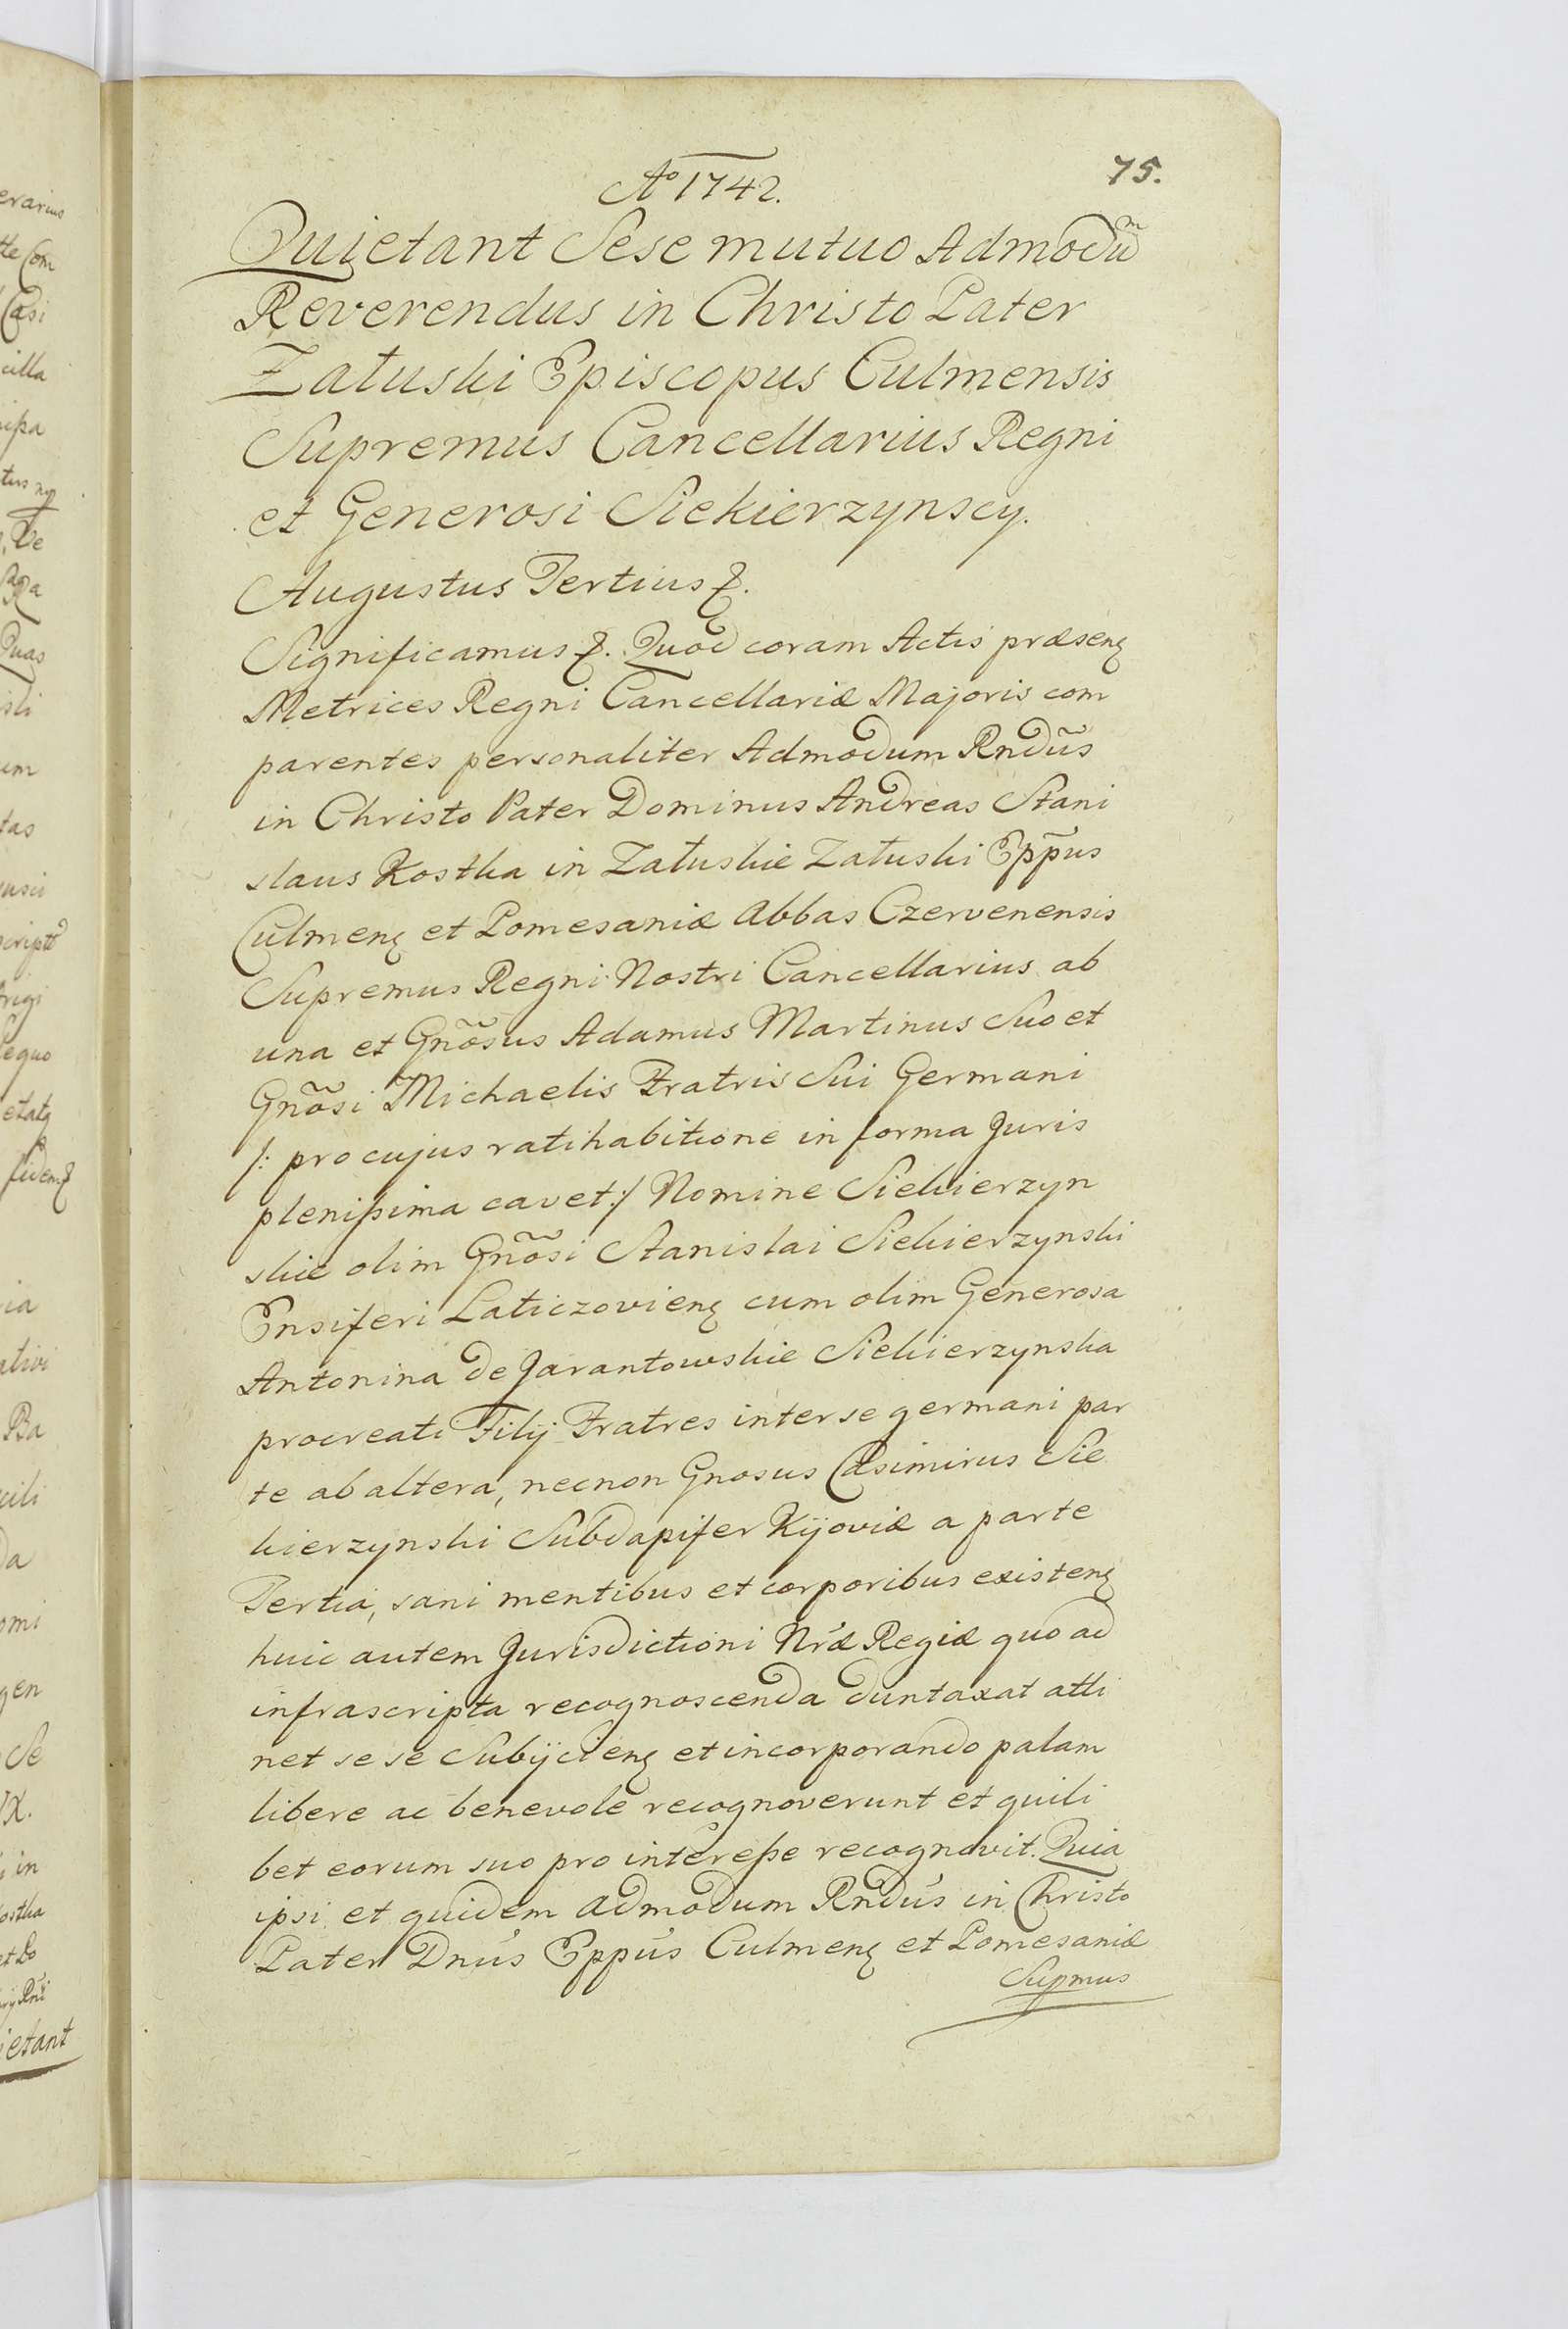 75.
Ao 1742.
Quietant Sese mutuo Admodũm
Reverendus in Christo Pater
Załuski Episcopus Culmensis
Supremus Cancellarius Regni
et Generosi Siekierzynscy.
Augustus Tertius &.
Significamus &. Quod coram Actis præsenꝫ
Metrices Regni Cancellariæ Majoris com
parentes personaliter Admodum Rndũs
in Christo Pater Dominus Andreas Stani
slaus Kostka in Załuskie Załuski Epp̃us
Culmenꝫ et Pomesaniæ Abbas Czervenensis
Supremus Regni Nostri Cancellarius ab
una et Gnõsus Adamus Martinus Suo et
Gnõsi Michaelis Fratris Sui Germani
/: pro cujus ratihabitione in forma Juris
plenißima cavet :/ Nomine Siekierzyn
skie olim Gnõsi Stanislai Siekierzynski
Ensiferi Laticzovienꝫ cum olim Generosa
Antonina de Jarantowskie Siekierzynska
procreati Filij Fratres inter se germani par
te ab altera, necnon Gnosus Casimirus Sie
kierzynski Subdapifer Kijoviæ a parte
Tertia, sani mentibus et corporibus existenꝫ
huic autem Jurisdictioni Nr̃æ Regiæ quo ad
infrascripta recognoscenda duntaxat atti
net se se Subijcienꝫ et incorporando palam
libere ac benevole recognoverunt et quili
bet eorum suo pro intereße recognovit. Quia
ipsi et quidem Admodum Rndũs in Christo
Pater Dnũs Eppũs Culmenꝫ et Pomesaniæ
Supmus